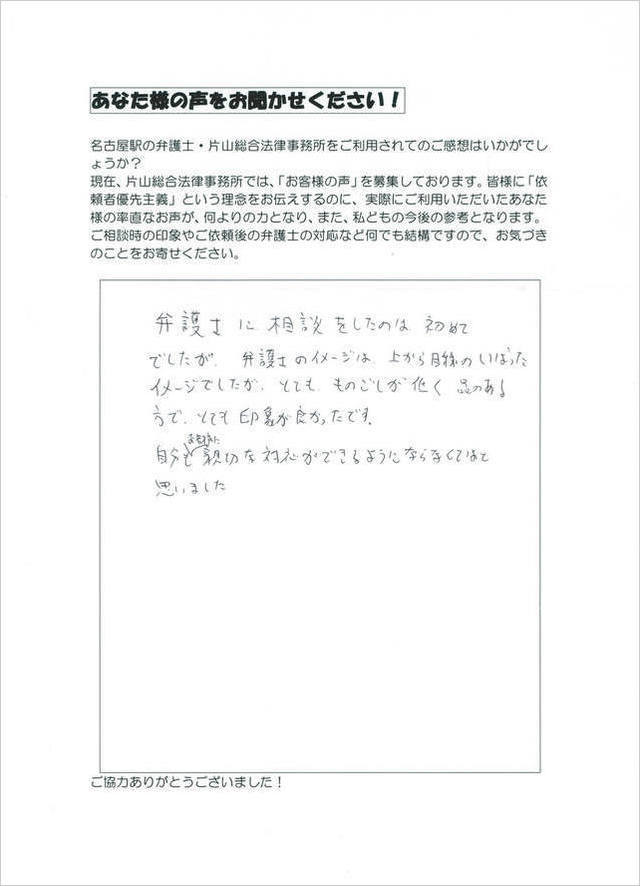 あなた様の声をお聞かせください！
名古屋駅の弁護士・片山総合法律事務所をご利用されてのご感想はいかがでし
ょうか？
現在、片山総合法律事務所では、「お客様の声」を募集しております。皆様に「依
頼者優先主義」という理念をお伝えするのに、実際にご利用いただいたあなた
様の率直なお声が、何よりの力となり、また、私どもの今後の参考となります。
ご相談時の印象やご依頼後の弁護士の対応など何でも結構ですので、お気づき
のことをお寄せください。
弁護士に相談をしたのは初めて
でしたが、弁護士のイメージは、上から目線のいばった
イメージでしたが、とても、ものごしが低く 品のある
方で、とても印象が良かったです。
自分も親切な対応ができるようにならなくてはと
思いました
ご協力ありがとうございました！